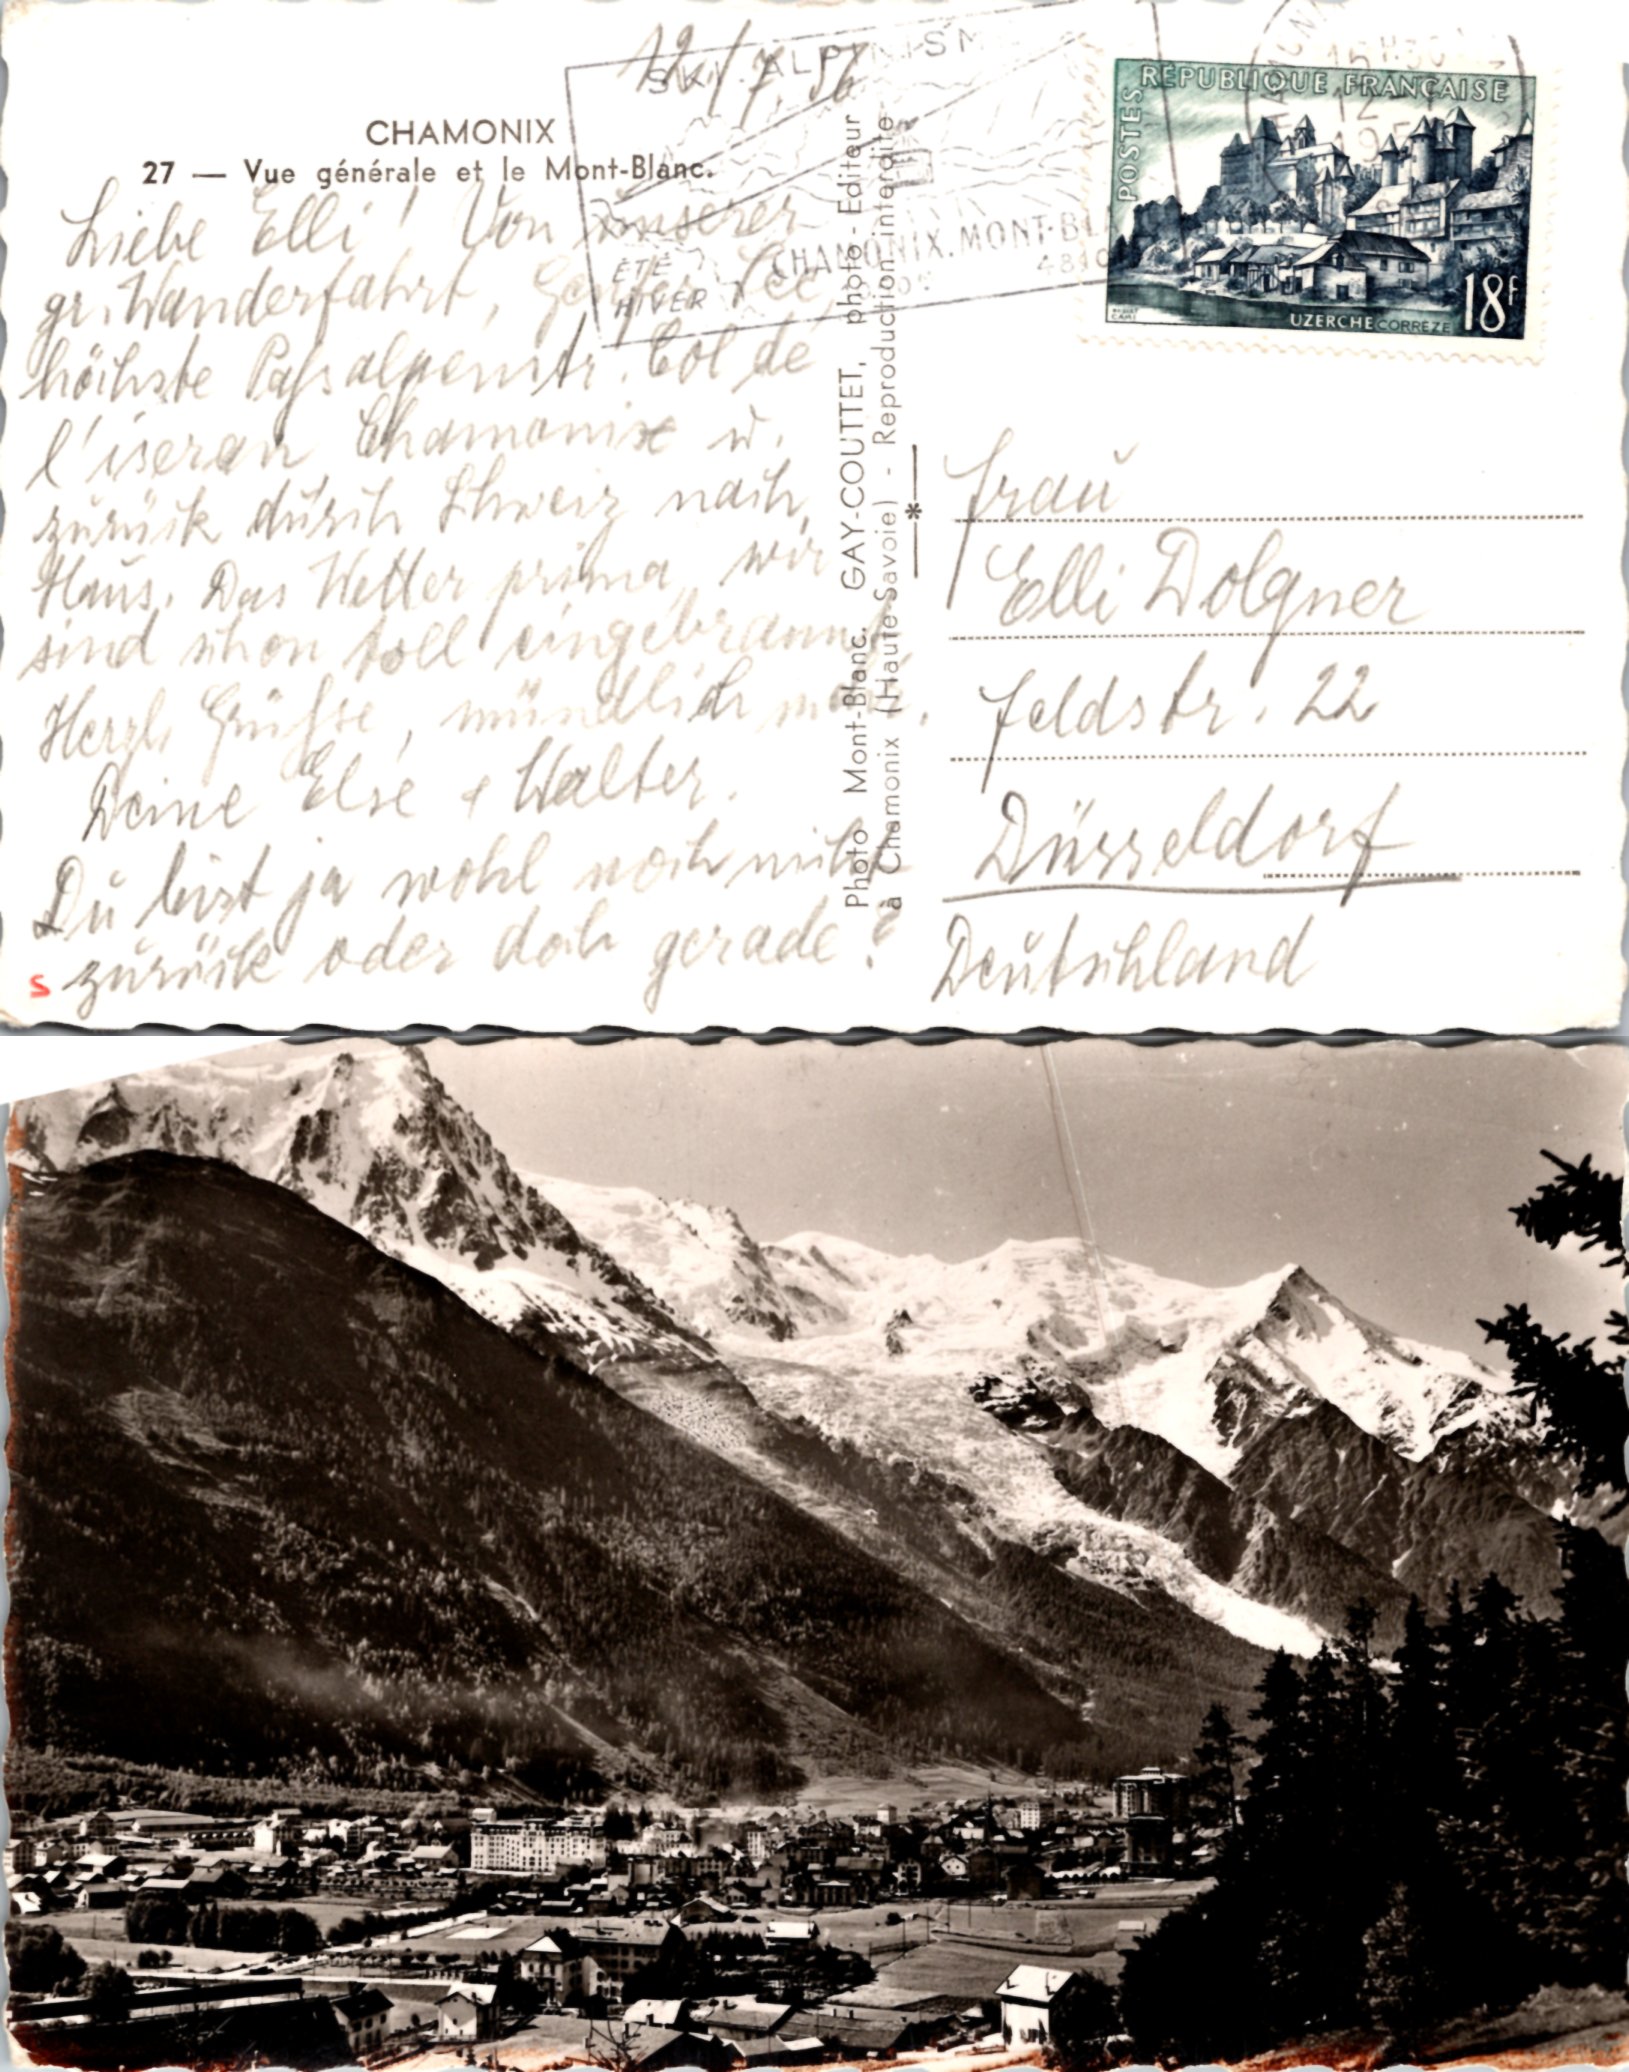 12./7. 56
SKI. ALPINISME
CHAMONIX
27 — Vue générale et le Mont-Blanc.
ÉTÉ
HIVER
CHAMONIX. MONT-BL
4810
RÉPUBLIQUE FRANÇAISE
POSTES
UZERCHE CORRÈZE
18F
15 H30
12
Liebe Elli! Von unserer
gr. Wanderfahrt, Genfer See
höchste Paßalpenstr. Col de
l'iseran Chamonix u.
zurück durch Schweiz nach
Haus. Das Wetter prima, wir
sind schon toll eingebrannt.
Herzl. Grüße, mündlich
Deine Else + Walter.
Du bist ja wohl noch nicht
zurück oder doch gerade?
S
Photo Mont-Blanc. GAY-COUTTET, photo-Editeur
à Chamonix (Haute-Savoie) - Reproduction interdite
Frau
Elli Dolgner
Feldstr. 22
Düsseldorf
Deutschland